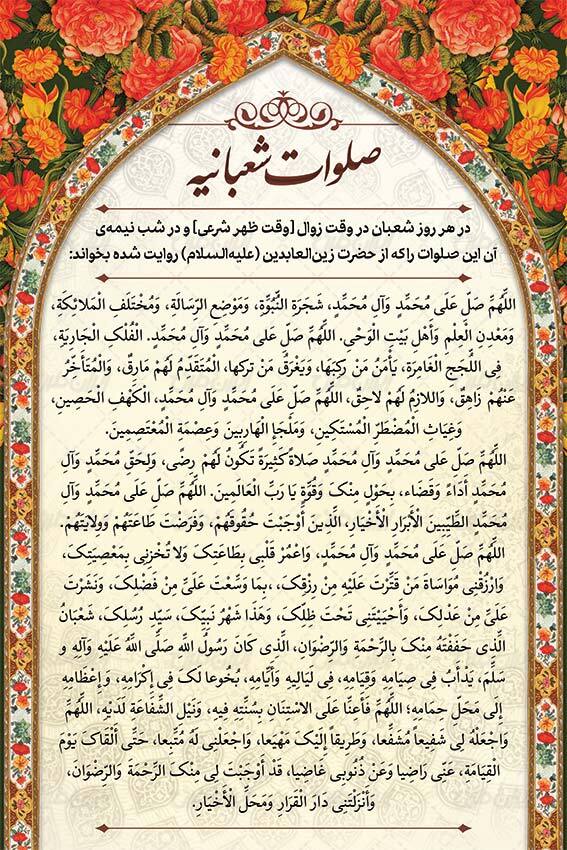 صلوات شعبانیه
در هر روز شعبان در وقت زوال [وقت ظهر شرعی] و در شب نیمه‌ی
آن این صلوات را که از حضرت زین‌العابدین (علیه‌السلام) روایت شده بخواند:
اللَّهُمَّ صَلِّ عَلَى مُحَمَّدٍ وَآلِ مُحَمَّدٍ، شَجَرَةِ النُّبُوَّةِ، وَمَوْضِعِ الرِّسَالَةِ، وَمُخْتَلَفِ الْمَلائِكَةِ،
وَمَعْدِنِ الْعِلْمِ وَأَهْلِ بَيْتِ الْوَحْىِ. اللَّهُمَّ صَلِّ عَلى مُحَمَّدٍ وَآلِ مُحَمَّدٍ. الْفُلْکِ الْجَارِيَةِ،
فِى اللُّجَجِ الْغَامِرَةِ، يَأْمَنُ مَنْ رَكِبَهَا، وَيَغْرَقُ مَنْ تركها، الْمُتَقَدِّمُ لَهُمْ مَارِقٌ، وَالْمُتَأَخِّرُ
عَنْهُمْ زَاهِقٌ، وَاللازِمُ لَهُمْ لاحقٌ، اللَّهُمَّ صَلِّ عَلَى مُحَمَّدٍ وَآلِ مُحَمَّدٍ، الْكَهْفِ الْحَصِينِ،
وَغِيَاثِ الْمُضْطَرِّ الْمُسْتَكِينِ، وَمَلْجَإِ الْهَارِبِينَ وَعِصْمَةِ الْمُعْتَصِمِينَ.
اللَّهُمَّ صَلِّ عَلى مُحَمَّدٍ وَآلِ مُحَمَّدٍ صَلاةً كَثِيرَةً تَكُونُ لَهُمْ رِضًى، وَلِحَقِّ مُحَمَّدٍ وَآلِ
مُحَمَّدٍ أَدَاءً وَقَضَاء، بِحَوْلٍ مِنْکَ وَقُوَّةٍ يَا رَبَّ الْعَالَمِينَ. اللَّهُمَّ صَلِّ عَلَى مُحَمَّدٍ وَآلِ
مُحَمَّدٍ الطَّيِّبِينَ الْأَبْرَارِ الْأَخْيَارِ، الَّذِينَ أَوْجَبْتَ حُقُوقَهُمْ، وَفَرَضْتَ طَاعَتَهُمْ وَوِلايَتَهُمْ.
اللَّهُمَّ صَلِّ عَلَى مُحَمَّدٍ وَآلِ مُحَمَّدٍ، وَاعْمُرْ قَلْبِى بِطَاعَتِکَ وَلا تُخْزِنِى بِمَعْصِيَتِکَ،
وَارْزُقْنِى مُوَاسَاةَ مَنْ قَتَّرْتَ عَلَيْهِ مِنْ رِزْقِکَ، ،بِمَا وَسَّعْتَ عَلَىَّ مِنْ فَضْلِکَ، وَنَشَرْتَ
عَلَىَّ مِنْ عَدْلِکَ، وَأَحْيَيْتَنِى تَحْتَ ظِلِّکَ، وَهَذَا شَهْرُ نَبِيِّکَ، سَيِّدِ رُسُلِکَ، شَعْبَانُ
الَّذِى حَفَفْتَهُ مِنْکَ بِالرَّحْمَةِ وَالرِّضْوَانِ، الَّذِى كَانَ رَسُولُ اللَّهِ صَلَّى اللَّهُ عَلَيْهِ وَآلِهِ و
سَلَّمَ، يَدْأَبُ فِى صِيَامِهِ وَقِيَامِهِ، فِى لَيَالِيهِ وَأَيَّامِهِ، بُخُوعا لَکَ فِى إِكْرَامِهِ، وَإِعْظَامِهِ
إِلَى مَحَلِّ حِمَامِهِ؛ اللَّهُمَّ فَأَعِنَّا عَلَى الاسْتِنَانِ بِسُنَّتِهِ فِيهِ، وَنَيْلِ الشَّفَاعَةِ لَدَيْهِ، اللَّهُمَّ
وَاجْعَلْهُ لِى شَفِيعاً مُشَفَّعا، وَطَرِيقاً إِلَيْکَ مَهْيَعا، وَاجْعَلْنِى لَهُ مُتَّبِعا، حَتَّى أَلْقَاکَ يَوْمَ
الْقِيَامَةِ، عَنِّى رَاضِيا وَعَنْ ذُنُوبِى غَاضِيا، قَدْ أَوْجَبْتَ لِى مِنْکَ الرَّحْمَةَ وَالرِّضْوَانَ،
وَأَنْزَلْتَنِى دَارَ الْقَرَارِ وَمَحَلَّ الْأَخْيَارِ.